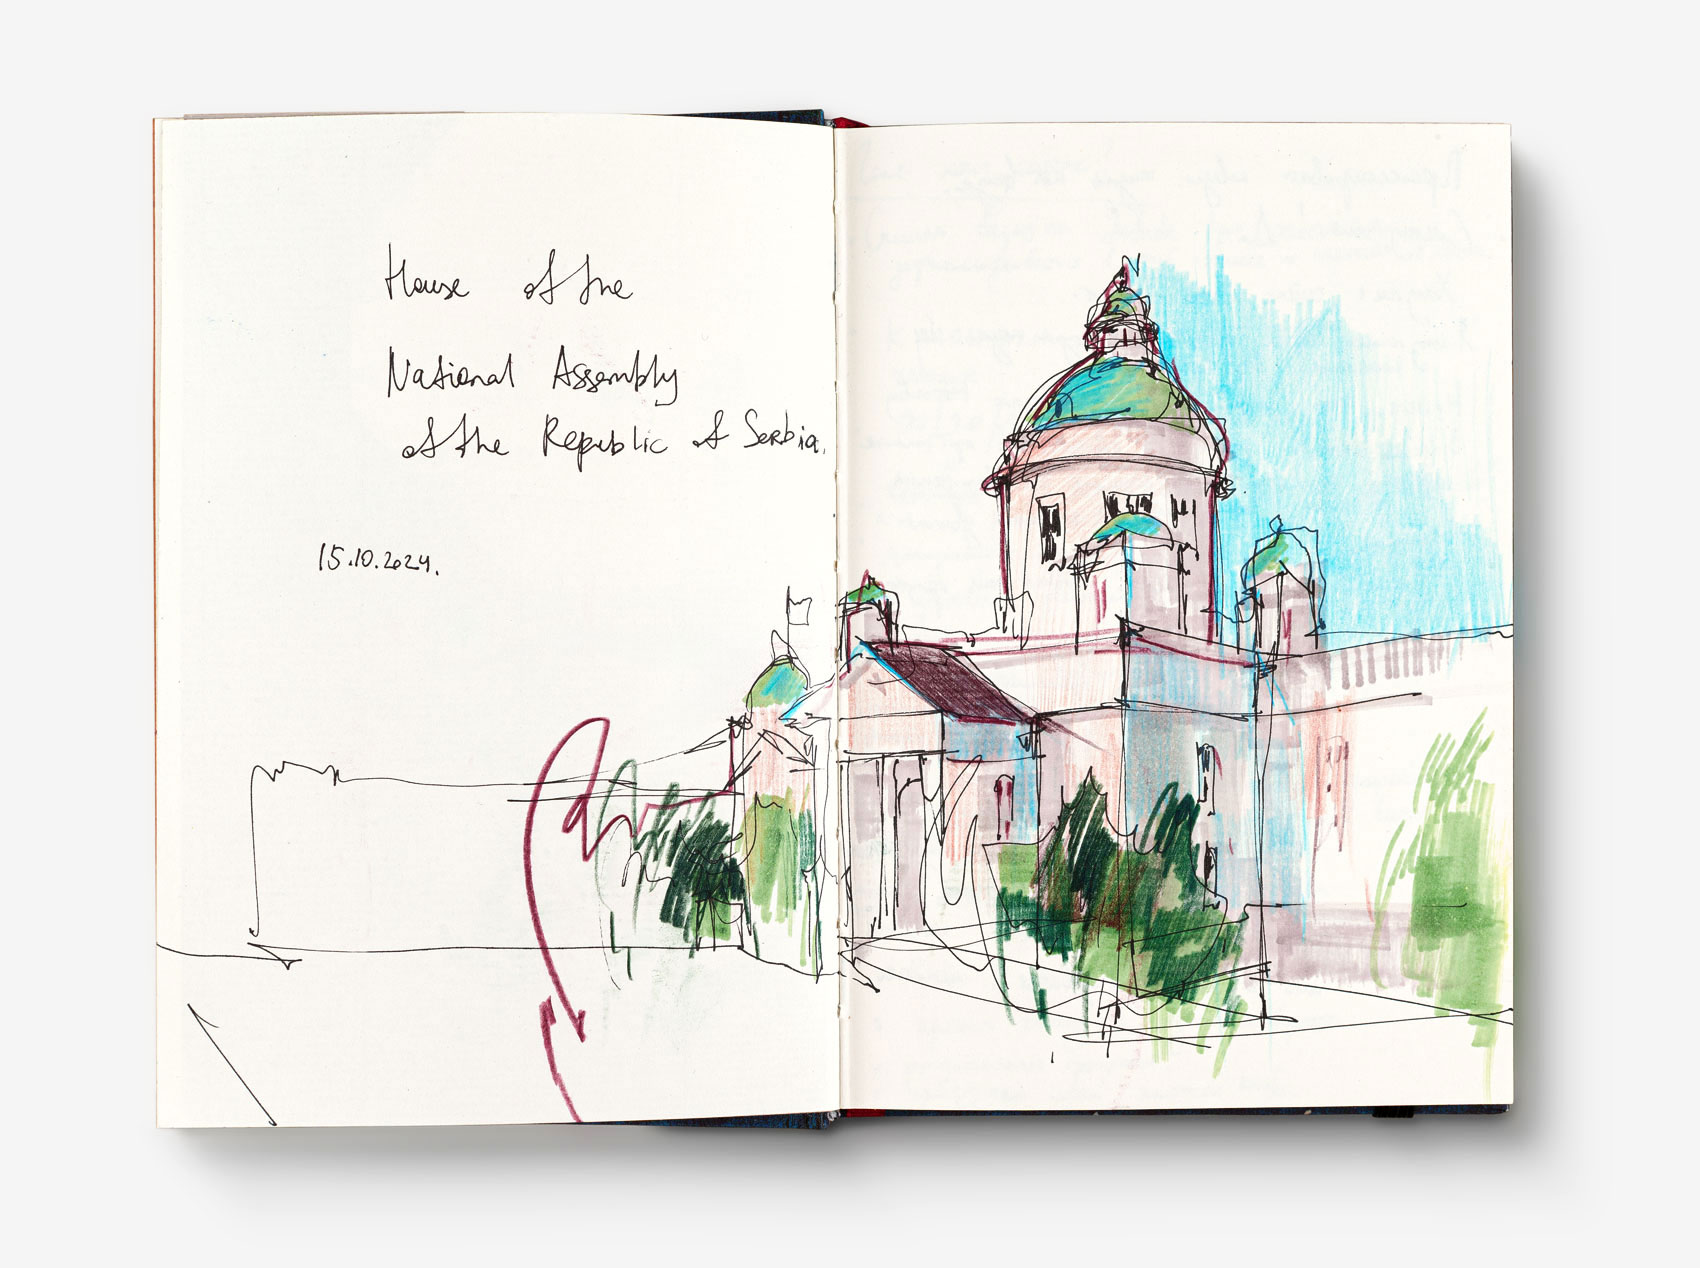 House of the
National Assembly
of the Republic of Serbia.
15.10.2024.